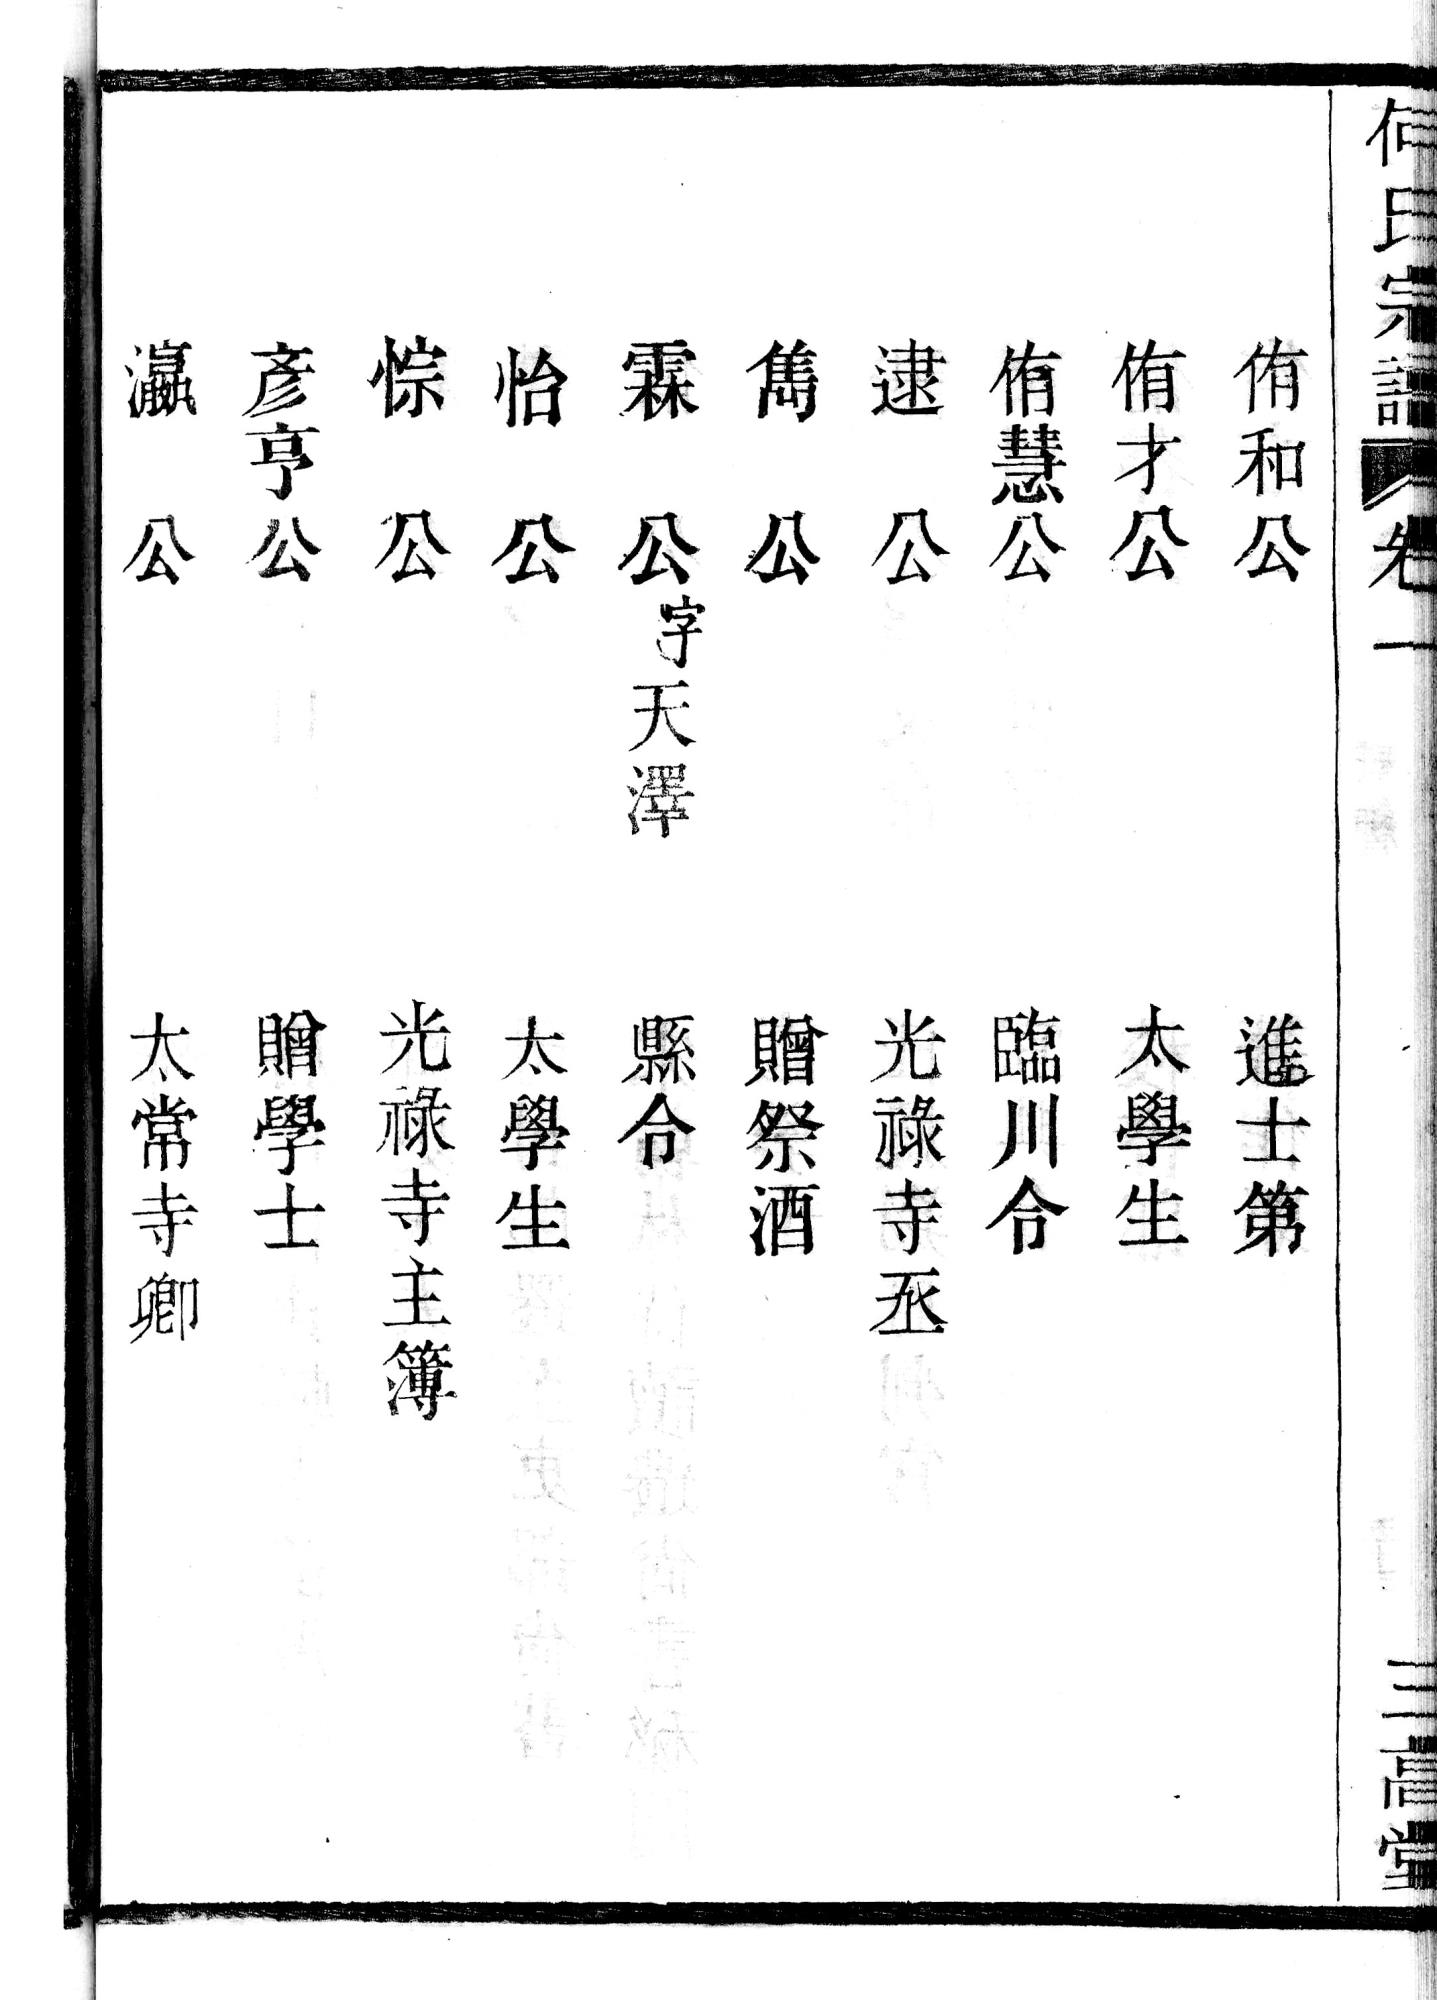 何氏宗譜 卷一 三高堂
侑和公 進士第
侑才公 太學生
侑慧公 臨川令
逮公 光祿寺丞
雋公 贈祭酒
霖公字天澤 縣令
怡公 太學生
悰公 光祿寺主簿
彥亨公 贈學士
瀛公 太常寺卿